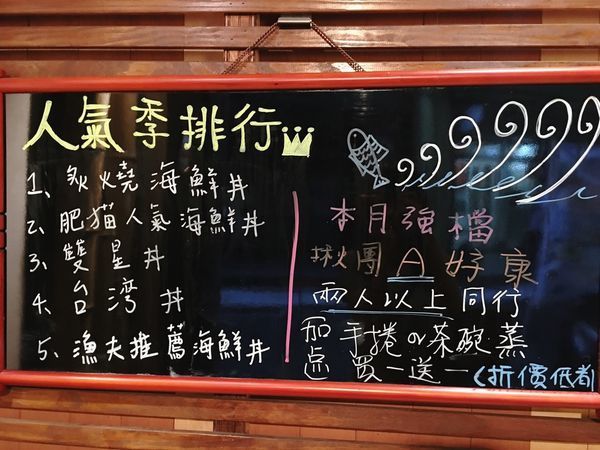 人氣季排行
1、炙燒海鮮丼
2、肥猫人氣海鮮丼
3、雙星丼
4、台湾丼
5、漁夫推薦海鮮丼
本月強檔
揪團A好康
兩人以上同行
加点手捲or茶碗蒸
買一送一(折價低者